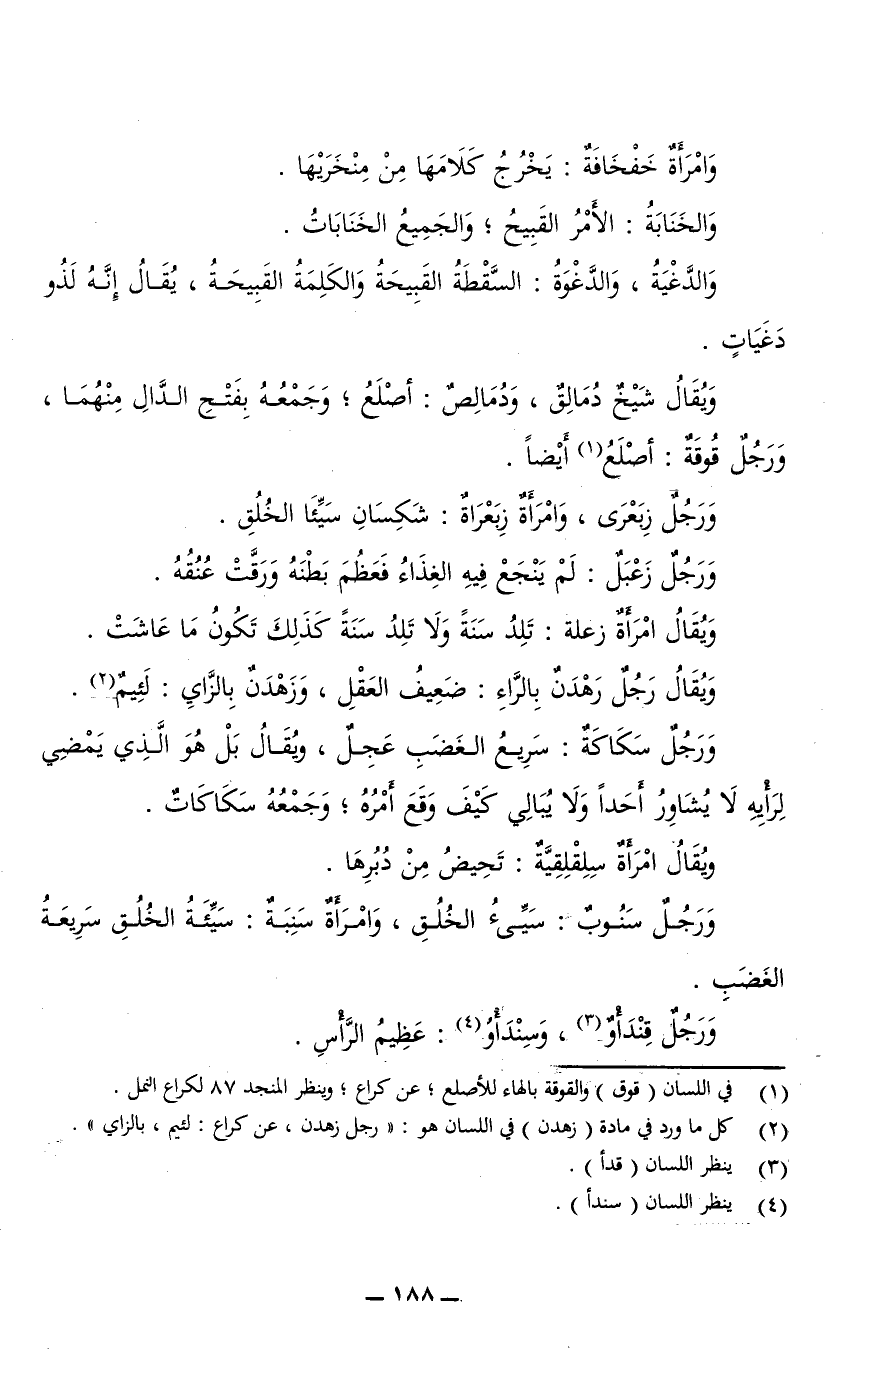 وَامْرَأَةٌ خَفْخَافَةٌ : يَخْرُجُ كَلَامَهَا مِنْ مِنْخَرَيْهَا .
وَالخَنَابَةُ : الأَمْرُ القَبِيحُ ؛ وَالجَمِيعُ الخَنَابَاتُ .
وَالدَّغْيَةُ ، وَالدَّغْوَةُ : السَّقْطَةُ القَبِيحَةُ وَالكَلِمَةُ القَبِيحَةُ ، يُقَالُ إِنَّهُ لَذُو
دَغَيَاتٍ .
وَيُقَالُ شَيْخٌ دُمَالِقٌ ، وَدُمَالِصٌ : أصْلَعُ ؛ وَجَمْعُهُ بِفَتْحِ الدَّالِ مِنْهُمَا ،
وَرَجُلٌ قُوقَةٌ : أصْلَعُ(١) أَيْضاً .
وَرَجُلٌ زِبَعْرَى ، وَامْرَأَةٌ زِبَعْرَاةٌ : شَكِسَانِ سَيِّئَا الخُلُقِ .
وَرَجُلٌ زَعْبَلٌ : لَمْ يَنْجَعْ فِيهِ الغِذَاءُ فَعَظُمَ بَطْنَهُ وَرَقَّتْ عُنُقُهُ .
وَيُقَالُ امْرَأَةٌ زعلة : تَلِدُ سَنَةً وَلَا تَلِدُ سَنَةً كَذَلِكَ تَكُونُ مَا عَاشَتْ .
وَيُقَالُ رَجُلٌ رَهْدَنٌ بِالرَّاءِ : ضَعِيفُ العَقْلِ ، وَزَهْدَنٌ بِالزَّايِ : لَئِيمٌ(٢) .
وَرَجُلٌ سَكَاكَةٌ : سَرِيعُ الغَضَبِ عَجِلٌ ، ويُقَالُ بَلْ هُوَ الَّذِي يَمْضِي
لِرَأْيِهِ لَا يُشَاوِرُ أَحَداً وَلَا يُبَالِي كَيْفَ وَقَعَ أَمْرُهُ ؛ وَجَمْعُهُ سَكَاكَاتٌ .
ويُقَالُ امْرَأَةٌ سِلِقْلِقِيَّةٌ : تَحِيضُ مِنْ دُبُرِهَا .
وَرَجُلٌ سَنُوبٌ : سَيِّىءُ الخُلُقِ ، وَامْرَأَةٌ سَنِبَةٌ : سَيِّئَةُ الخُلُقِ سَرِيعَةُ
الغَضَبِ .
وَرَجُلٌ قِنْدَأْوٌ(٣) ، وَسِنْدَأْوُ(٤) : عَظِيمُ الرَّأْسِ .
(١) في اللسان ( قوق ) والقوقة بالهاء للأصلع ؛ عن كراع ؛ وينظر المنجد ٨٧ لكراع النمل .
(٢) كل ما ورد في مادة ( زهدن ) في اللسان هو : « رجل زهدن ، عن كراع : لئيم ، بالزاي » .
(٣) ينظر اللسان ( قدأ ) .
(٤) ينظر اللسان ( سندأ ) .
ـ ١٨٨ ـ